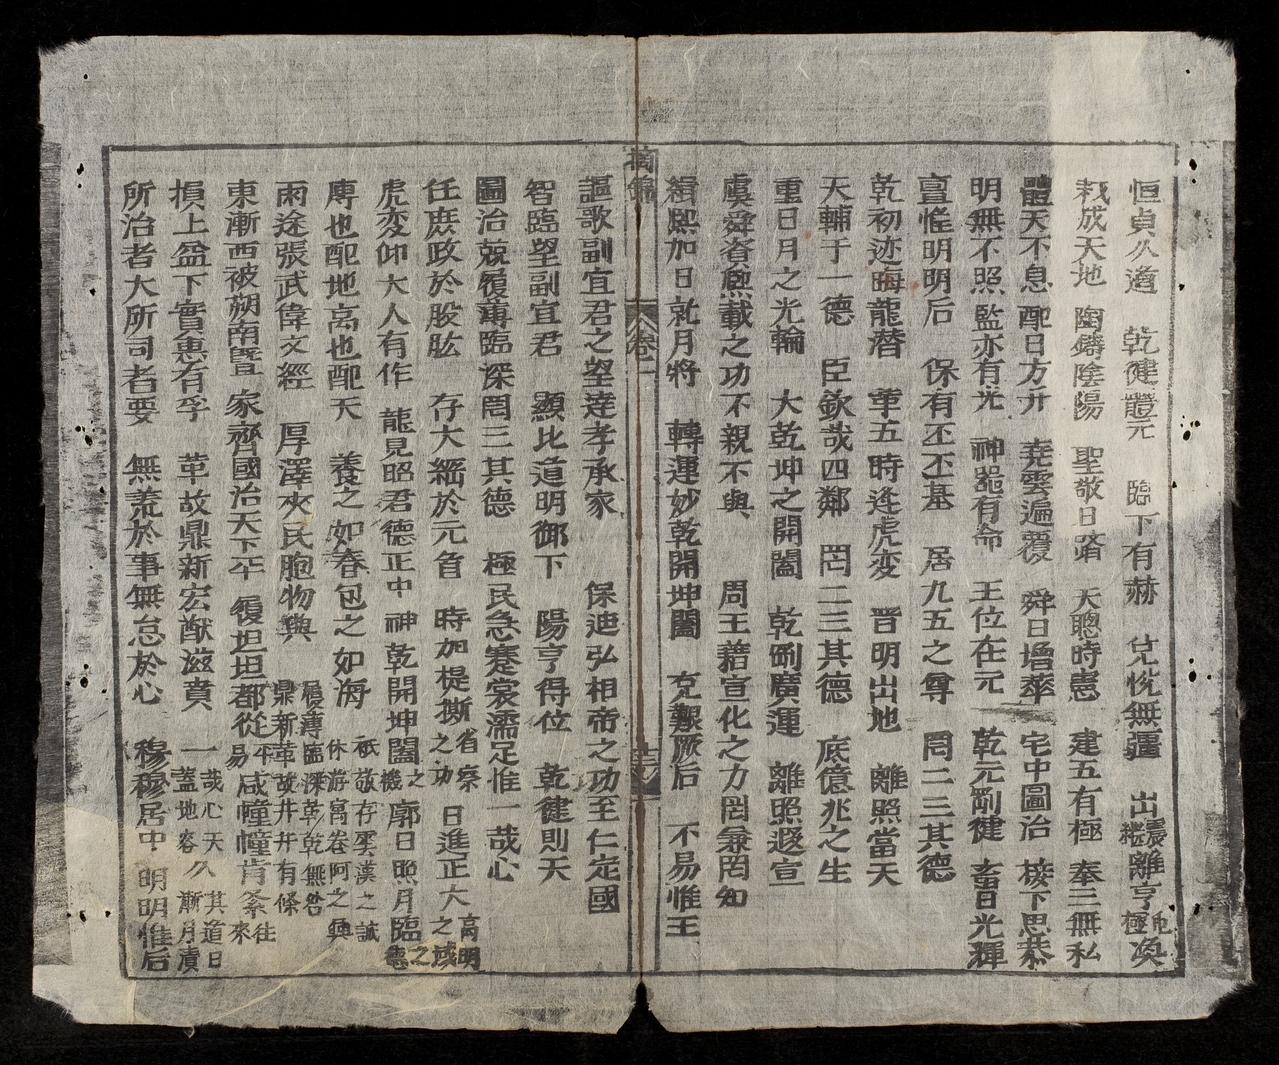 恒貞久道 乾健體元 臨下有赫 兌悅無疆 出震繼離亨屯極渙
栽成天地 陶鑄陰陽 聖敬日躋 天聰時憲 建五有極 奉三無私
體天不息 配日方升 堯雲遍覆 舜日增華 宅中圖治 接下思恭
明無不照 監亦有光 神器有命 王位在元 乾元剛健 畜日光輝
亶惟明明后 保有丕丕基 居九五之尊 罔二三其德
乾初迹晦龍潛 革五時逢虎变 晋明出地 離照當天
天輔于一德 臣欽哉四鄰 罔二三其德 底億兆之生
重日月之光輪 大乾坤之開闔 乾剛廣運 離照遐宣
虞舜省熙載之功不親不與 周王藉宣化之力罔兼罔知
緝熙加日就月將 轉運妙乾開坤闔 克艱厥后 不易惟王
卷一
謳歌副宜君之望達孝承家 保迪弘相帝之功至仁定國
智臨望副宜君 顯比道明御下 陽亨得位 乾健則天
圖治兢履薄臨深罔三其德 極民急蹇裳濡足惟一哉心
任庶政於股肱 存大綱於元首 時加提撕省察之功 日進正大高明之域
虎变仰大人有作 龍見昭君德正中 神乾開坤闔之機 廓日照月臨之德
慱也配地高也配天 養之如春包之如海 祇敬存雲漢之誠 休游寓卷阿之興
兩途張武偉文經 厚澤夾民胞物與 履薄臨深乾乾無咎 鼎新革故井井有條
東漸西被朔南曁 家齊國治天下平 履坦坦都從平易 咸憧憧肯紊往來
損上益下實惠有孚 革故鼎新宏猷滋賁 一哉心天久其道日 蓋地容漸月漬
所治者大所司者要 無荒於事無怠於心 穆穆居中 明明惟后